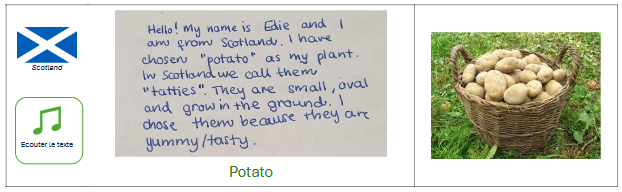 Scotland
Ecouter le texte
Hello! My name is Edie and I
am from Scotland. I have
chosen "potato" as my plant.
In Scotland we call them
"tatties". They are small, oval
and grow in the ground. I
chose them because they are
yummy/tasty.
Potato